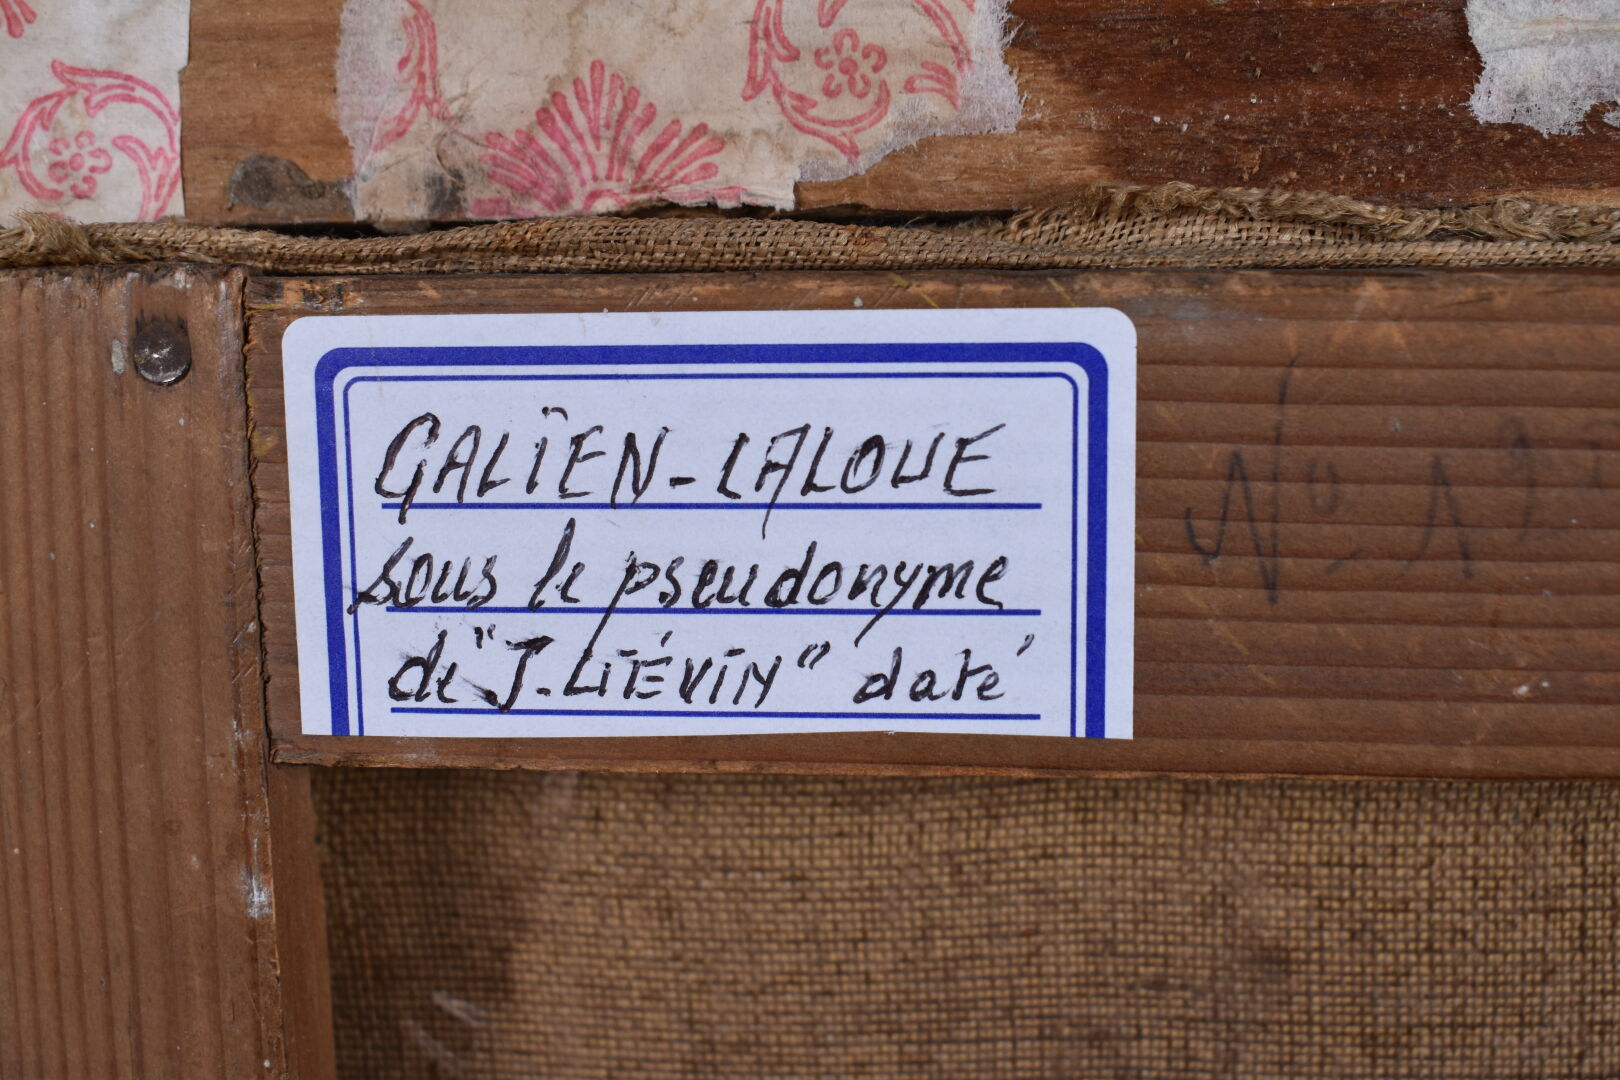 GALIEN-LALOUE
sous le pseudonyme
de "J. LIÉVIN" daté
No